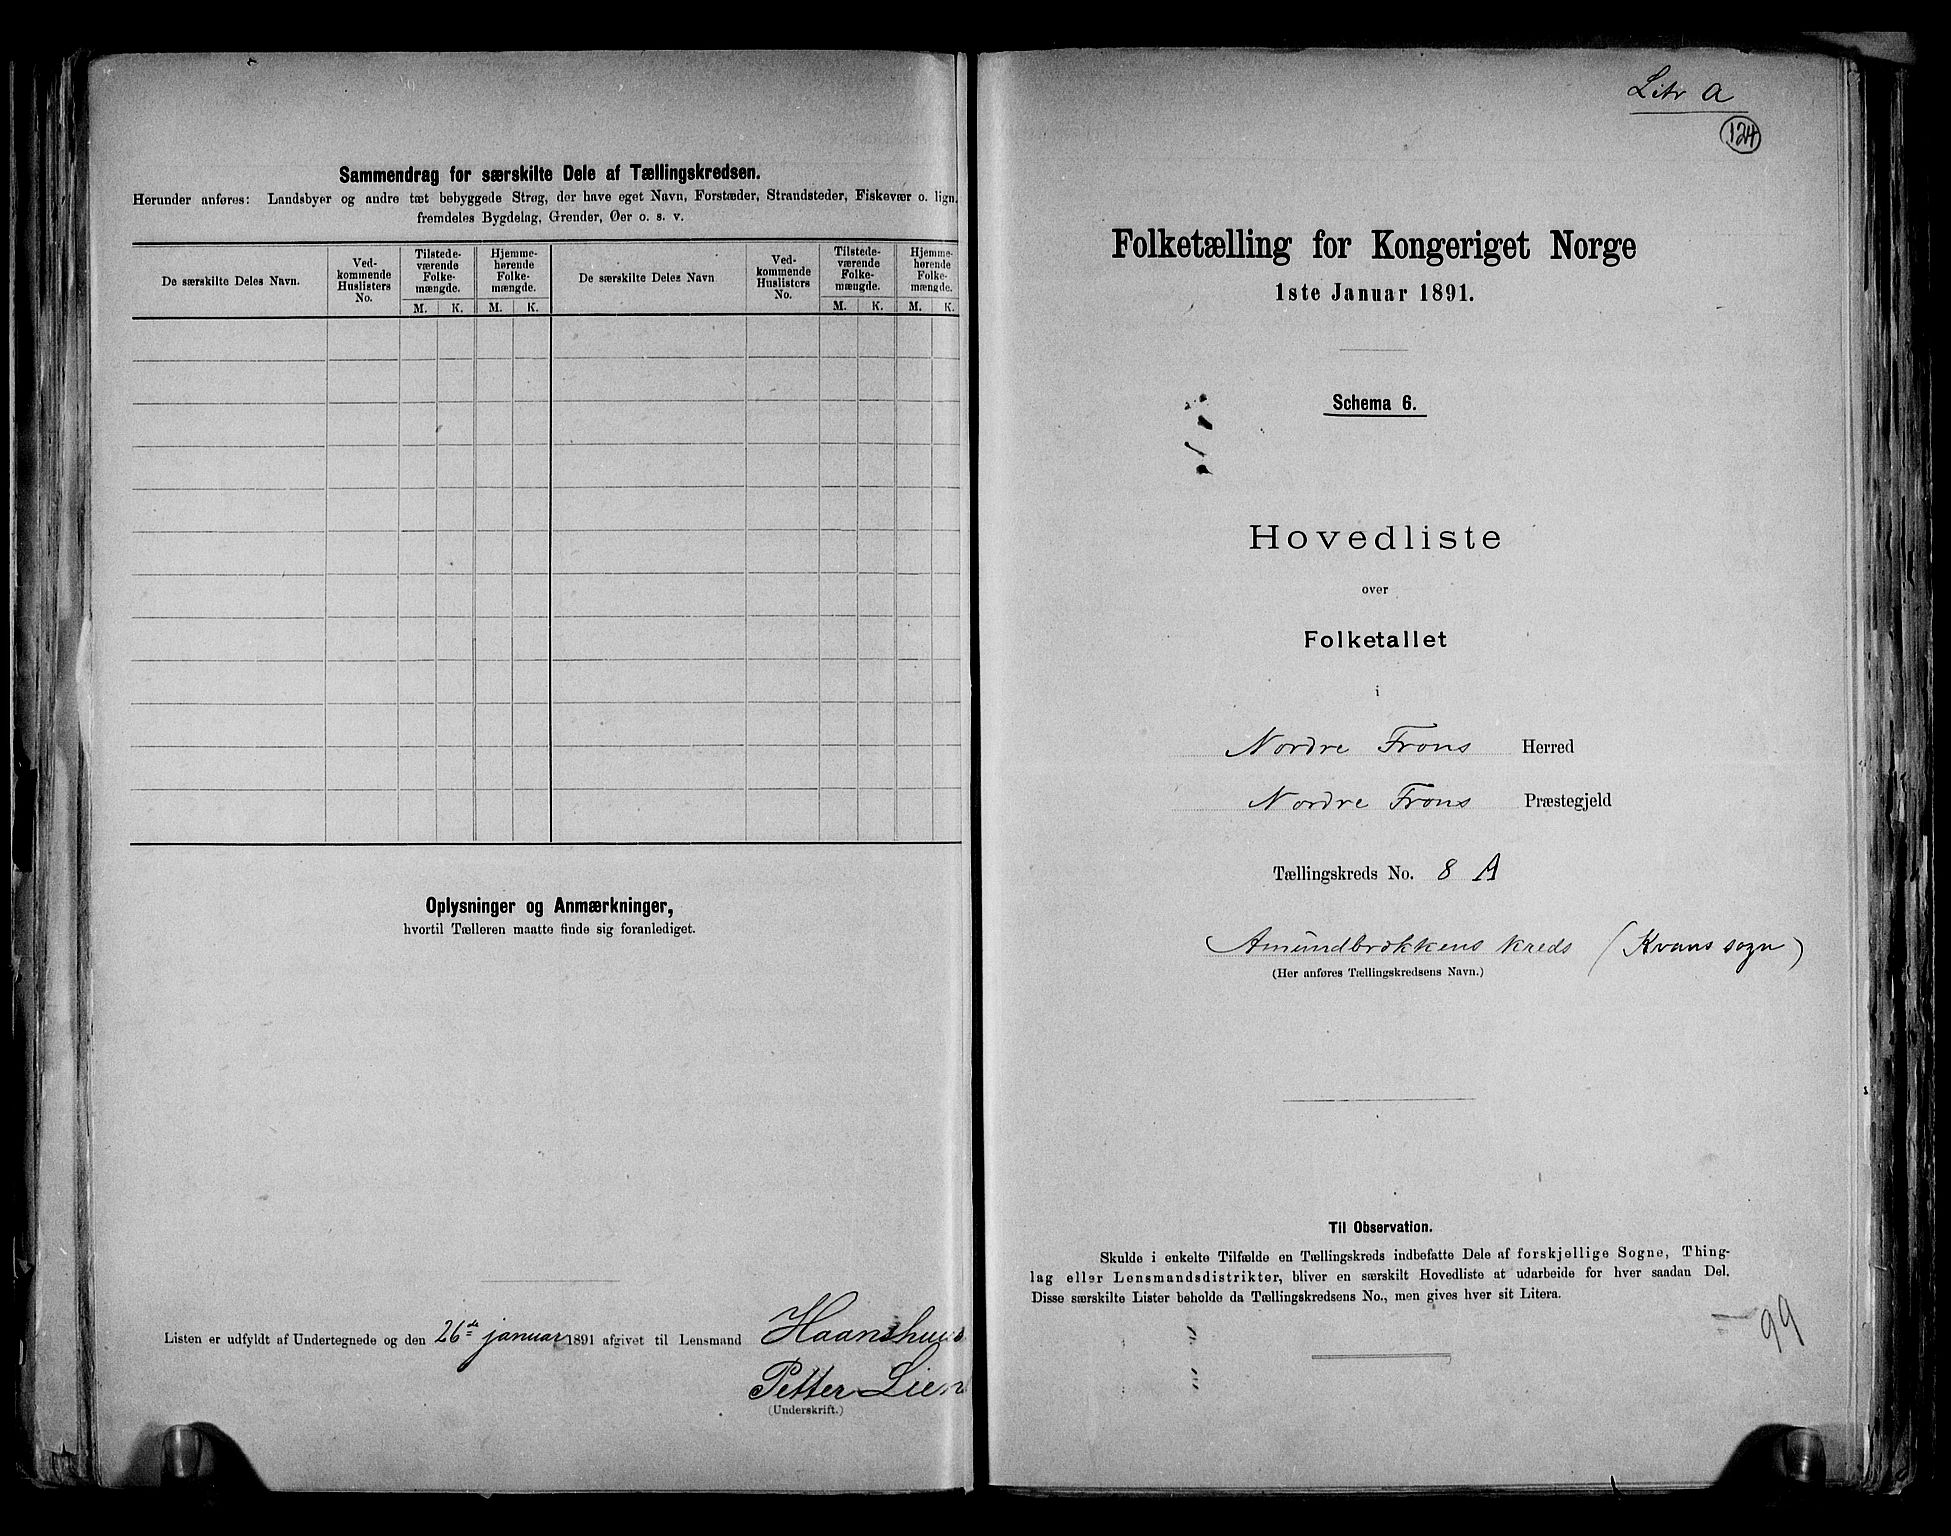 Sammendrag for særskilte Dele af Tællingskredsen.
Herunder anføres: Landsbyer og andre tæt bebyggede Strøg, der have eget Navn, Forstæder, Strandsteder, Fiskevær o. lign.
fremdeles Bygdelag, Grender, Øer o. s. v.
De særskilte Deles Navn.
Ved-
kommende
Huslisters
No.
Tilstede-
værende
Folke-
mængde.
Hjemme-
hørende
Folke-
mængde.
De særskilte Deles Navn
Ved-
kommende
Huslisters
No.
Tilstede-
værende
Folke-
mængde.
Hjemme-
hørende
Folke-
mængde.
M. K. M. K. M. K. M. K.
Oplysninger og Anmærkninger,
hvortil Tælleren maatte finde sig foranlediget.
Listen er udfyldt af Undertegnede og den 26de januar 1891 afgivet til Lensmand
Petter Lien
(Underskrift.)
Litr a
124
Folketælling for Kongeriget Norge
1ste Januar 1891.
Schema 6.
Hovedliste
over
Folketallet
i
Nordre Frons Herred
Nordre Frons Præstegjeld
Tællingskreds No. 8 A
Amundbrækkens kreds (Kvams sogn)
(Her anføres Tællingskredsens Navn.)
Til Observation.
Skulde i enkelte Tilfælde en Tællingskreds indbefatte Dele af forskjellige Sogne, Thing-
lag eller Lensmandsdistrikter, bliver en særskilt Hovedliste at udarbeide for hver saadan Del.
Disse særskilte Lister beholde da Tællingskredsens No., men gives hver sit Litera.
99